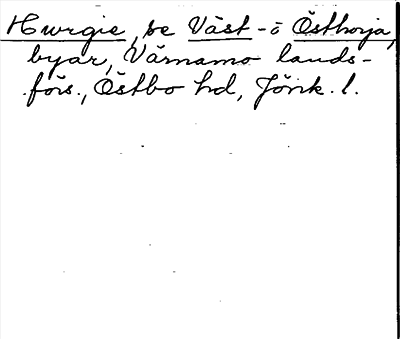 Hwrgie, se Väst- o Östhorja,
byar, Värnamo lands-
förs., Östbo hd, Jönk. l.